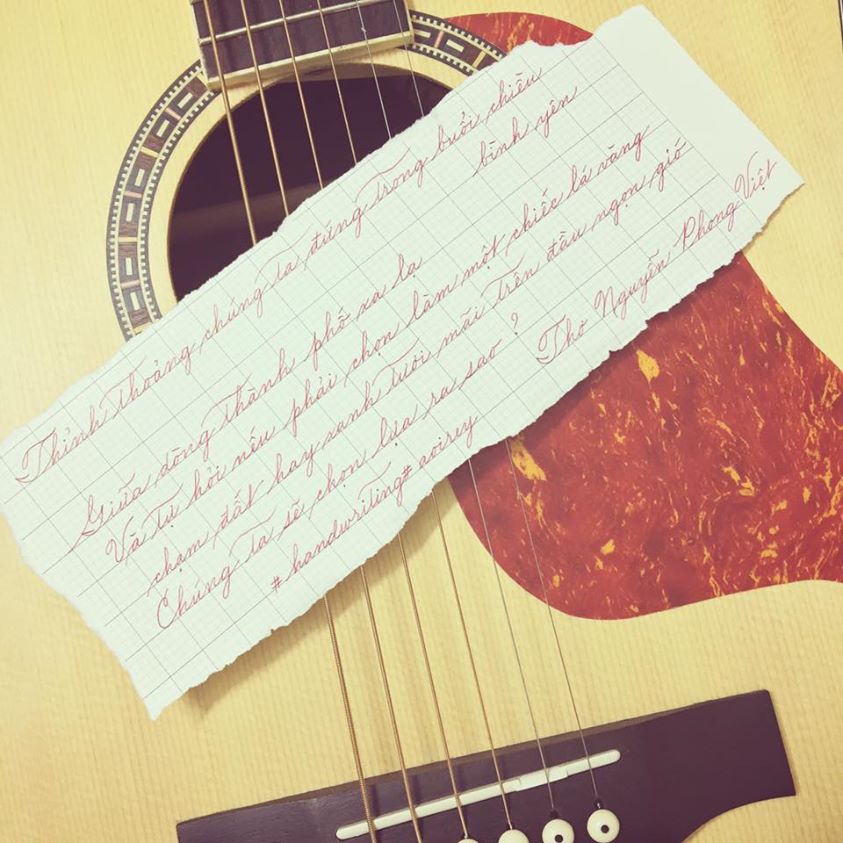 Thỉnh thoảng chúng ta đứng trong buổi chiều
bình yên
Giữa dòng thành phố xa lạ
Và tự hỏi nếu phải chọn làm một chiếc lá vàng
chạm đất hay xanh tươi mãi trên đầu ngọn gió
Chúng ta sẽ chọn lựa ra sao ?
Thơ Nguyễn Phong Việt
#handwriting# aoirey